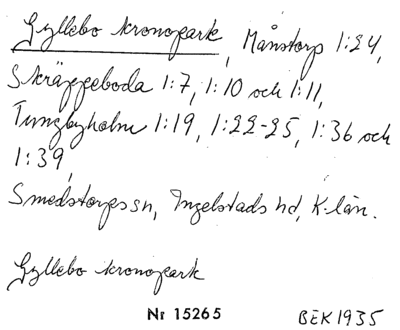 Gyllebo kronopark, Månstorp 1:24,
Skräppeboda 1:7, 1:10 och 1:11,
Tungbyholm 1:19, 1:22-25, 1:36 och
1:39,
Smedstorps sn, Ingelstads hd, K-län.
Gyllebo kronopark
Nr 15265 BEK 1935